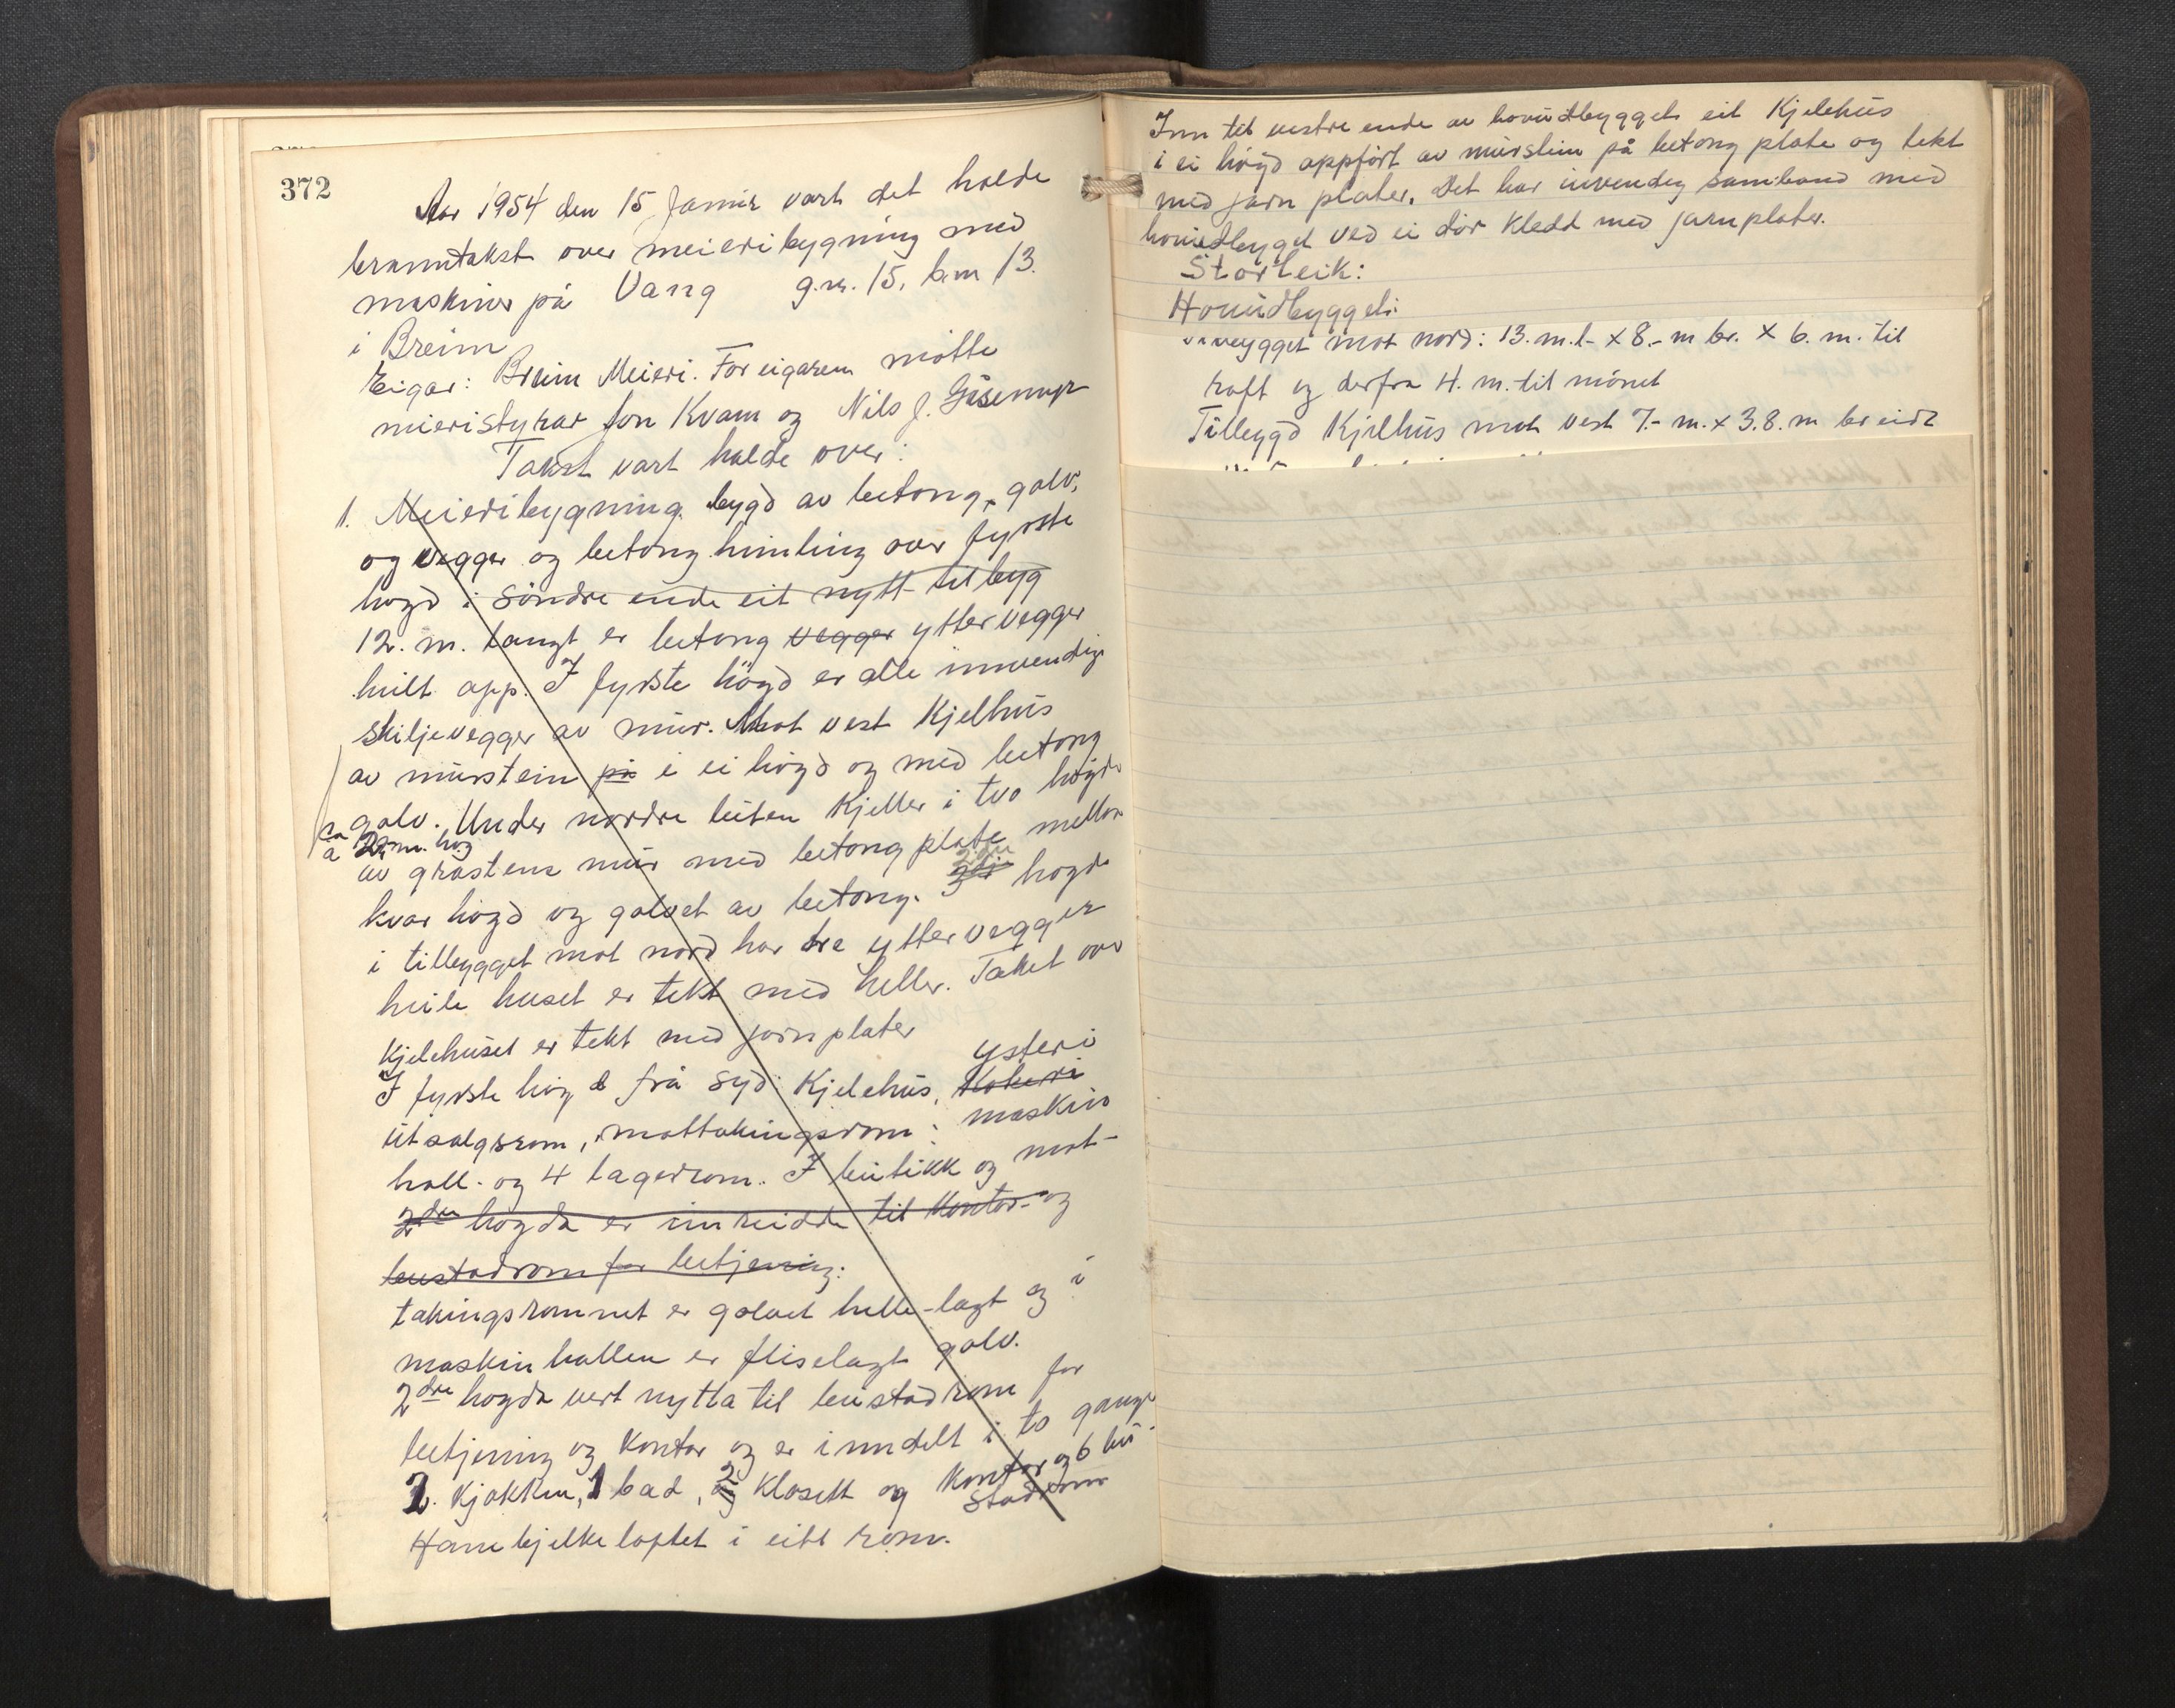 372
Aar 1954 den 15 Januar vart det halde
branntakst over meieribygning med
maskiner på Vang g.nr. 15, b.nr 13.
i Breim
Eigar: Breim Meieri. For eigaren møtte
meieristyrar Jon Kvam og Nils J.
Takst vart halde over:
1. Meieribygning bygd av betong, golv,
og vegger og betong himling over fyrste
høgd i søndre ende eit nytt tilbyg
12. m. langt er betong vegger yttervegger
heilt opp. I fyrste høgd er alle innvendige
skiljevegger av mur. Mot vest Kjelhus
av murstein på i ei høgd og med betong
golv. Under nordre luten Kjeller i tvo høgde
a 2 m. høg
av grastens mur med betong plate mellom
kvar høgd og golvet av betong. 2dre høgde
i tilbygget mot nord har tre yttervegger
heile huset er tekt med heller. Taket over
Kjelehuset er tekt med jarnplater
ysteri
I fyrste høgd frå syd: Kjelehus, Kokeri
utsalgsrom, mottakingsrom; maskin
hall. og 4 lagerrom. I butikk og mot-
2dre høgda er innreidde til Kontor- og
bustadrom for betjening.
takingsrommet er golvet helle-lagt og i
maskinhallen er fliselagt golv.
2dre høgda vert nytta til bustadrom for
betjening og Kontor og er inndelt i to gange
2. Kjøkken, 1 bad, 2 Klosett og Kontor og 6 bu-
stadrom
Hanebjelkeloftet i eitt rom.
Inn til vestre ende av hovudbygget eit Kjelehus
i ei høgd oppført av murstein på betong plate og tekt
med jarn plater. Det har innvendig samband med
hovudbygget ved ei dør Kledd med jarnplater.
Storleik:
Hovudbygget:
mot nord: 13. m. l. x 8.- m br. x 6. m. til
raft og derfra 4. m. til mønet
Tilbygd Kjelhus mot vest 7.- m. x 3.8. m breidt